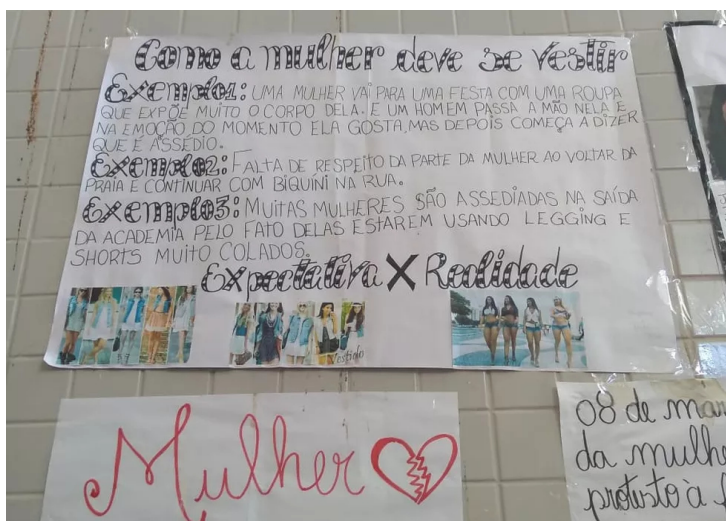 Como a mulher deve se vestir
Exemplo1: UMA MULHER VAI PARA UMA FESTA COM UMA ROUPA
QUE EXPÕE MUITO O CORPO DELA. E UM HOMEM PASSA A MÃO NELA E
NA EMOÇÃO DO MOMENTO ELA GOSTA, MAS DEPOIS COMEÇA A DIZER
QUE É ASSÉDIO.
Exemplo2: FALTA DE RESPEITO DA PARTE DA MULHER AO VOLTAR DA
PRAIA E CONTINUAR COM BIQUÍNI NA RUA.
Exemplo3: MUITAS MULHERES SÃO ASSEDIADAS NA SAÍDA
DA ACADEMIA PELO FATO DELAS ESTAREM USANDO LEGGING E
SHORTS MUITO COLADOS.
Expectativa X Realidade
Mulher
08 de mar
da mulhe
protesto à